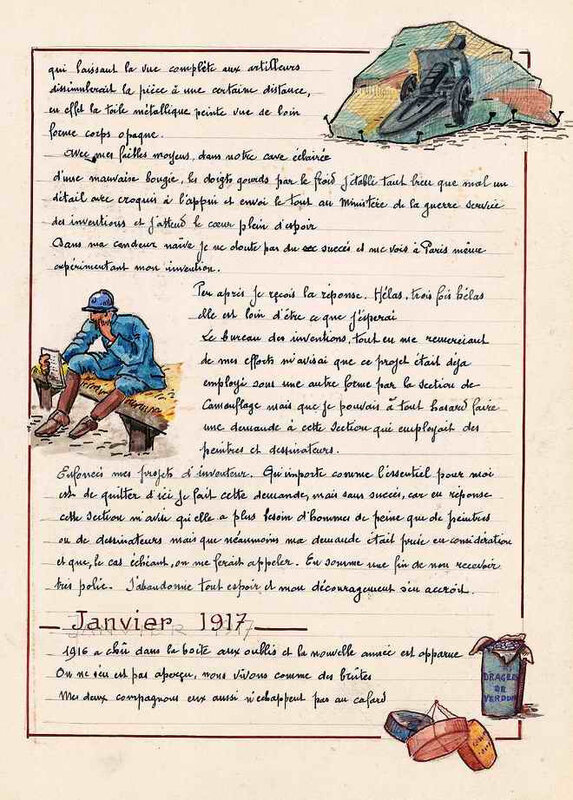 qui laissant la vue complète aux artilleurs
dissimulerait la pièce à une certaine distance,
en effet la toile métallique peinte vue de loin
forme corps opaque.
Avec mes faibles moyens, dans notre cave éclairée
d'une mauvaise bougie, les doigts gourds par le froid j'établis tant bien que mal un
détail avec croquis à l'appui et envoi le tout au Ministère de la guerre service
des inventions et j'attend le cœur plein d'espoir
Dans ma candeur naïve je ne doute pas du succès et me vois à Paris même
expérimentant mon invention.
Peu après je reçois la réponse. Hélas, trois fois hélas
elle est loin d'être ce que j'espérai
Le bureau des inventions, tout en me remerciant
de mes efforts m'avisai que ce projet était déja
employé sous une autre forme par la section de
Camouflage mais que je pouvais à tout hasard faire
une demande à cette section qui employait des
peintres et dessinateurs.
Enfoncés mes projets d'inventeur. Qu'importe comme l'essentiel pour moi
est de quitter d'ici je fait cette demande, mais sans succès, car en réponse
cette section m'avise qu'elle a plus besoin d'hommes de peine que de peintres
ou de dessinateurs mais que néanmoins ma demande était prise en considération
et que, le cas échéant, on me ferait appeler. En somme une fin de non recevoir
très polie. J'abandonne tout espoir et mon découragement s'en accroit.
Janvier 1917
1916 a chû dans la boite aux oubliés et la nouvelle année est apparue
On ne s'en est pas aperçu, nous vivons comme des brûtes
Mes deux compagnons eux aussi n'échappent pas au cafard
DRAGEES
DE
VERDUN